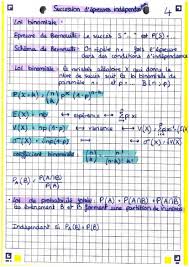 Succession d'épreuves indépendantes
4
Loi binomiale :
Épreuve de Bernoulli : Le succès S P(S)
Schéma de Bernoulli : On répète n fois l'épreuve
dans des conditions d'indépendance
Loi binomiale : la variable aléatoire X qui donne le
nbre de succès suit la loi binomiale de
paramètre n et p B(n;p)
E(X) = np ↔ espérance ↔
V(X) = np(1-p) ↔ variance ↔ V(X) =
σ(X) = ↔ σ(X) =
coefficient binomial
P_A(B) = P(A∩B) / P(A)
Loi de probabilité totale : P(A) = P(A∩B) + P(A∩B̄)
les évènements B et B̄ forment une partition de l'univers
Indépendant si P_A(B) = P(B)